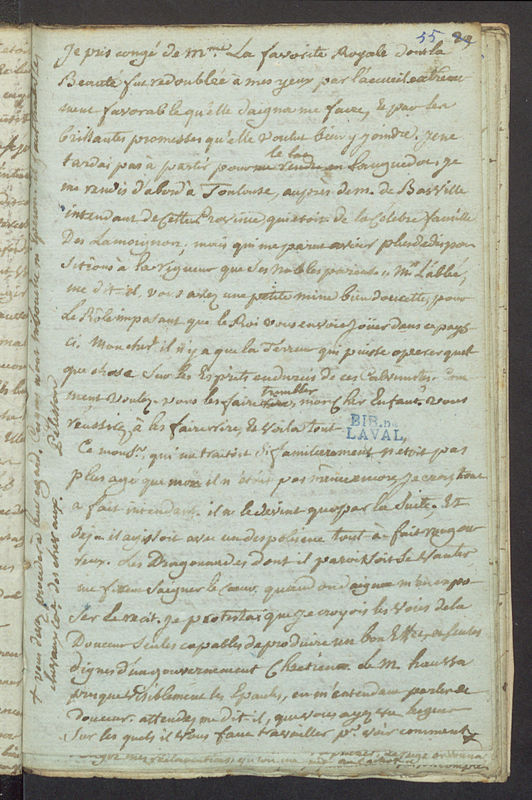 55
Je pris congé de Mme La favorite Royale dont la
Beauté fut redoublée à mes yeux par l'accueil extreme
ment favorable qu'elle daigna me faire, & par les
brillantes promesses qu'elle voulut bien y joindre. Je ne
tardai pas à partir pour le bas Languedoc, je
me rendis d'abord à Toulouse, aupres de M. de Basville
intendant de Cette Province, qui etoit de la Celebre famille
Des Lamoignon, mais qui me parut avoir plus de dispo
sitions à la rigueur que ses nobles parens. Mr L'abbé,
me dit il, vous avez une petite mine bien doucette, pour
Le Role imposant que le Roi vous envoie jouer dans ce pays
ci. Mon cher il n'y a que la Terreur qui puisse operer quel
que chose sur les Esprits endurcis de ces Calvinistes. Com
ment voulez vous les faire trembler, mon Cher Enfant, vous
réussirez à les faire rire, & voila tout
BIB. DE
LAVAL
Ce monsr. qui me traitoit si familierement n'etoit pas
plus agé que moi il n'étoit pas même encore, je crois tout
a fait intendant. il ne le devint que par la suite. Et
deja il agissoit avec un despotisme tout-à-fait rigou
reux. Les Dragonnades dont il paroissoit se vanter
me firent saigner le coeur, quand on daigna m'en expo
ser le recit. je protestai que je croyois les voies de la
Douceur seules capables de produire un bon Effet, & seules
dignes d'un gouvernement Chretien. Le M. haussa
presque visiblement les Epaules, en m'entendant parler de
douceur. attendez me dit il, que vous ayez vu
sur les quels il vous faut travailler pr. voir comment